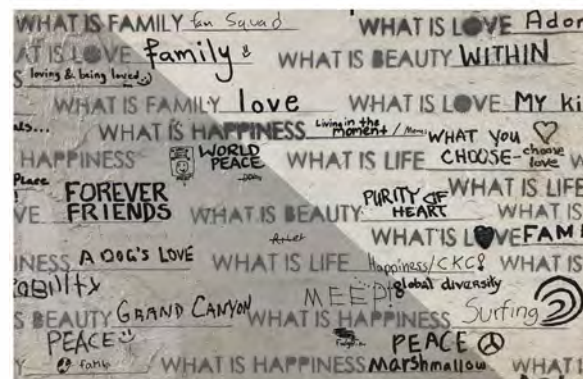 WHAT IS FAMILY fan Squad WHAT IS LOVE Ador
AT IS LOVE family & WHAT IS BEAUTY WITHIN
S loving & being loved :)
WHAT IS FAMILY love WHAT IS LOVE MY ki
als... WHAT IS HAPPINESS Living in the moment / WHAT YOU
HAPPINESS WORLD PEACE WHAT IS LIFE CHOOSE- choose love W
Place FOREVER FRIENDS WHAT IS LIFE
VE WHAT IS BEAUTY PURITY OF HEART WHAT IS
WHAT IS LOVE FAM
INESS A DOG'S LOVE WHAT IS LIFE Happiness/CKC! WHAT IS
ability MEEP! global diversity
S BEAUTY GRAND CANYON WHAT IS HAPPINESS Surfing
PEACE PEACE
Y WHAT IS HAPPINESS Marshmallow WHAT I